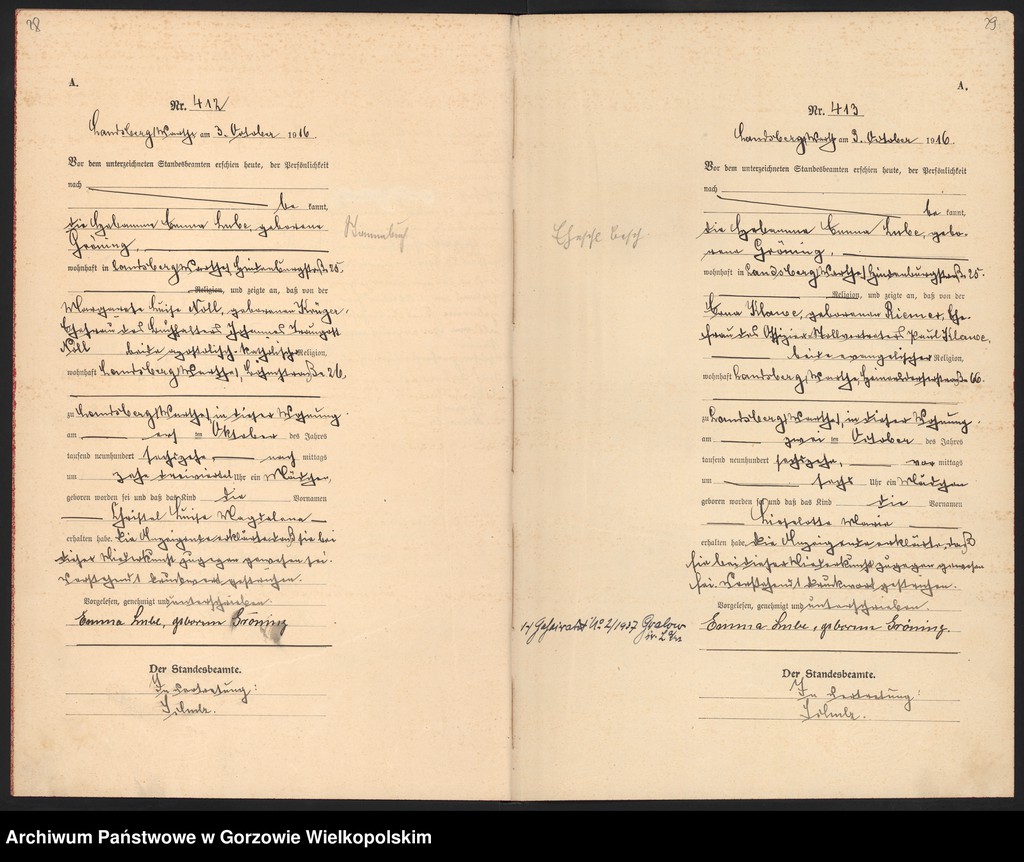 28
A.
Nr. 412
Landsberg/Warthe am 3. October 1916.
Vor dem unterzeichneten Standesbeamten erschien heute, der Persönlichkeit
nach
be kannt,
die Hebamme Emma Lube, geborene
Gröning,
wohnhaft in Landsberg/Warthe, Hindenburgstraße 25.
Religion, und zeigte an, daß von der
Margarete Luise Noll, geborenen Krüger,
Ehefrau des Buchhalters Johannes Traugott
Noll beide apostolisch-katholischer Religion,
wohnhaft Landsberg/Warthe,
zu Landsberg/Warthe, in dieser Wohnung
am im Oktober des Jahres
tausend neunhundert sechszehn, nach mittags
um zehn dreiviertel Uhr ein Mädchen
geboren worden sei und daß das Kind die Vornamen
Christel Luise Magdalena
erhalten habe. Die Anzeigende erklärte, daß sie bei
dieser Niederkunft zugegen gewesen sei.
Vorstehend 1 Druckwort gestrichen.
Vorgelesen, genehmigt und unterschrieben.
Emma Lube, geborene Gröning
Der Standesbeamte.
In Vertretung:
29
A.
Nr. 413
Landsberg/Warthe am 3. October 1916.
Vor dem unterzeichneten Standesbeamten erschien heute, der Persönlichkeit
nach
be kannt,
die Hebamme Emma Lube, gebo-
rene Gröning,
wohnhaft in Landsberg/Warthe, Hindenburgstraße 25.
Religion, und zeigte an, daß von der
Erna Klawe, geborenen Riemer, Ehe-
frau des Offizier-Stellvertreters Paul Klawe,
beide evangelischer Religion,
wohnhaft Landsberg/Warthe, 66.
zu Landsberg/Warthe, in dieser Wohnung
am zwei im October des Jahres
tausend neunhundert sechszehn, vor mittags
um sechs Uhr ein Mädchen
geboren worden sei und daß das Kind die Vornamen
Lieselotte Maria
erhalten habe. Die Anzeigende erklärte, daß
sie bei dieser Niederkunft zugegen gewesen
sei. Vorstehend 1 Druckwort gestrichen.
Vorgelesen, genehmigt und unterschrieben.
Emma Lube, geborene Gröning.
Der Standesbeamte.
In Vertretung:
Nr 2/1937 Gralow
Archiwum Państwowe w Gorzowie Wielkopolskim